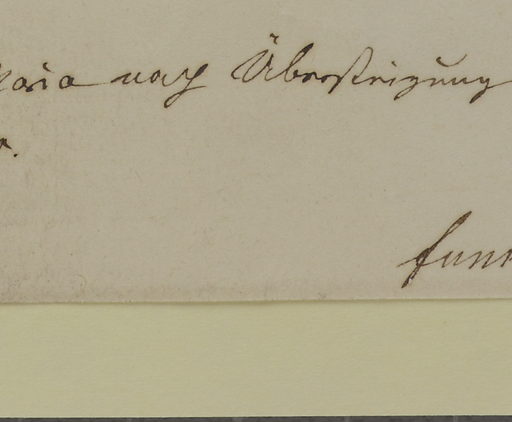 Maria nach Übersteigung
r.
Funk